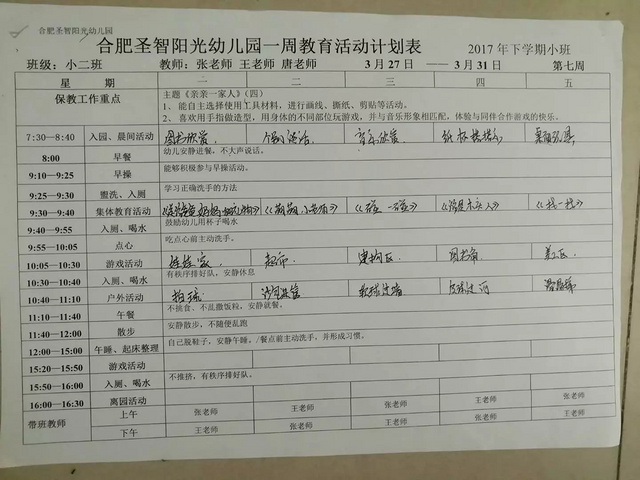 合肥圣智阳光幼儿园
合肥圣智阳光幼儿园一周教育活动计划表 2017年下学期小班
班级：小二班 教师：张老师 王老师 唐老师 3月27日——3月31日 第七周
星期 一 二 三 四 五
保教工作重点 主题《亲亲一家人》（四）
1、能自主选择使用工具材料，进行画线、撕纸、剪贴等活动。
2、喜欢用手指做造型，用身体的不同部位玩游戏，并与音乐形象相匹配，体验与同伴合作游戏的快乐。
7:30—8:40 入园、晨间活动 图书欣赏 个别谈话 音乐欣赏 纸杯 桌面玩具
8:00 早餐 幼儿安静进餐，不大声说话。
9:10—9:25 早操 能够积极参与早操活动。
9:25—9:30 盥洗、入厕 学习正确洗手的方法
9:30—9:40 集体教育活动 《碰一碰》 《我是木头人》 《找一找》
9:40—9:55 入厕、喝水 鼓励幼儿用杯子喝水
9:55—10:05 点心 吃点心前主动洗手。
10:05—10:30 游戏活动 娃娃家 超市 建构区 图书角 美工区
10:30—10:40 入厕、喝水 有秩序排好队，安静休息
10:40—11:10 户外活动 拍球
11:10—11:40 午餐 不挑食、不乱撒饭粒，安静就餐。
11:40—12:00 散步 安静散步，不随便乱跑
12:00—15:00 午睡、起床整理 自己脱鞋子，安静午睡，/餐点前主动洗手、并形成习惯。
15:20—15:50 游戏活动
15:50—16:00 入厕、喝水 不推挤，有秩序排好队。
16:00—16:30 离园活动
带班教师 上午 张老师 王老师 张老师 王老师 张老师
下午 王老师 张老师 王老师 张老师 王老师